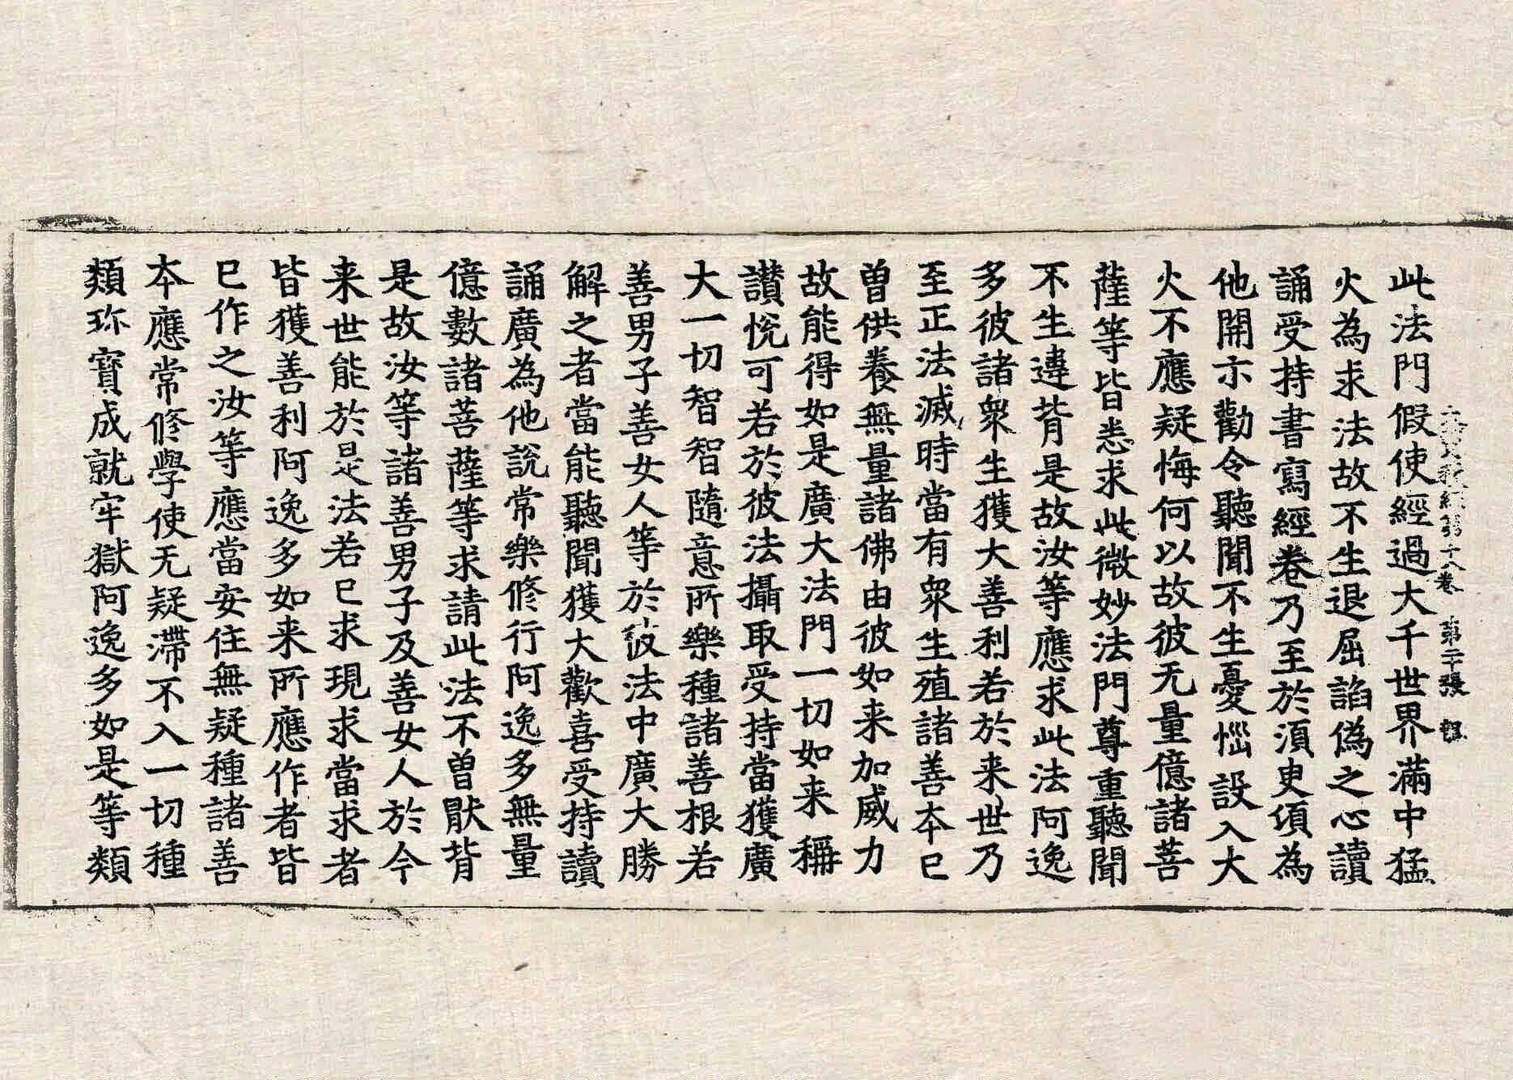 大寶積經第十八卷 第二十張 龍
此法門假使經過大千世界滿中猛
火為求法故不生退屈諂偽之心讀
誦受持書寫經卷乃至於湏臾頃為
他開示勸令聽聞不生憂惱設入大
火不應疑悔何以故彼无量億諸菩
薩等皆悉求此微妙法門尊重聽聞
不生違背是故汝等應求此法阿逸
多彼諸衆生獲大善利若於来世乃
至正法滅時當有衆生殖諸善夲已
曽供養無量諸佛由彼如来加威力
故能得如是廣大法門一切如来稱
讃悅可若於彼法攝取受持當獲廣
大一切智智隨意所樂種諸善根若
善男子善女人等於彼法中廣大勝
解之者當能聽聞獲大歡喜受持讀
誦廣為他說常樂修行阿逸多無量
億數諸菩薩等求請此法不曽猒背
是故汝等諸善男子及善女人於今
来世能於是法若已求現求當求者
皆獲善利阿逸多如来所應作者皆
已作之汝等應當安住無疑種諸善
夲應常修學使无疑滯不入一切種
類珎寶成就牢獄阿逸多如是等類